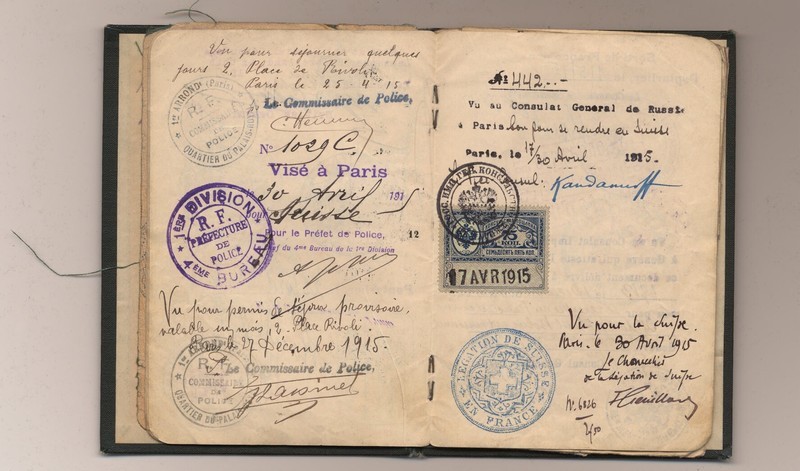 Vu pour séjourner quelques
jours 2. Place de Rivoli
Paris le 25-4-15
Le Commissaire de Police,
1er ARRONDt (Paris)
R. F.
COMMISSAIRE
DE
POLICE
QUARTIER DU PALAIS
No 1029 C.
Visé à Paris
le 30 Avril 1915
pour Suisse
Pour le Préfet de Police, 12
Chef du 4me Bureau de la 1re Division
1ÈRE DIVISION
R. F.
PRÉFECTURE
DE
POLICE
4ÈME BUREAU
Vu pour permis de séjour provisoire,
valable un mois, 2. Place Rivoli.
Paris le 27 Décembre 1915.
Le Commissaire de Police,
R. F.
COMMISSAIRE
DE
POLICE
QUARTIER DU PALAIS
No 442.--
Vu au Consulat General de Russie
à Paris bon pour se rendre en Suisse
Paris, le 17/30 Avril 1915.
Consul:
75
КОП
СЕМЬДЕСЯТЪ ПЯТЬ КОП
17 AVR 1915
LÉGATION DE SUISSE
EN FRANCE
Vu pour la Suisse.
Paris. le 30 Avril 1915
le Chancelier
de la Légation de Suisse
No. 6826